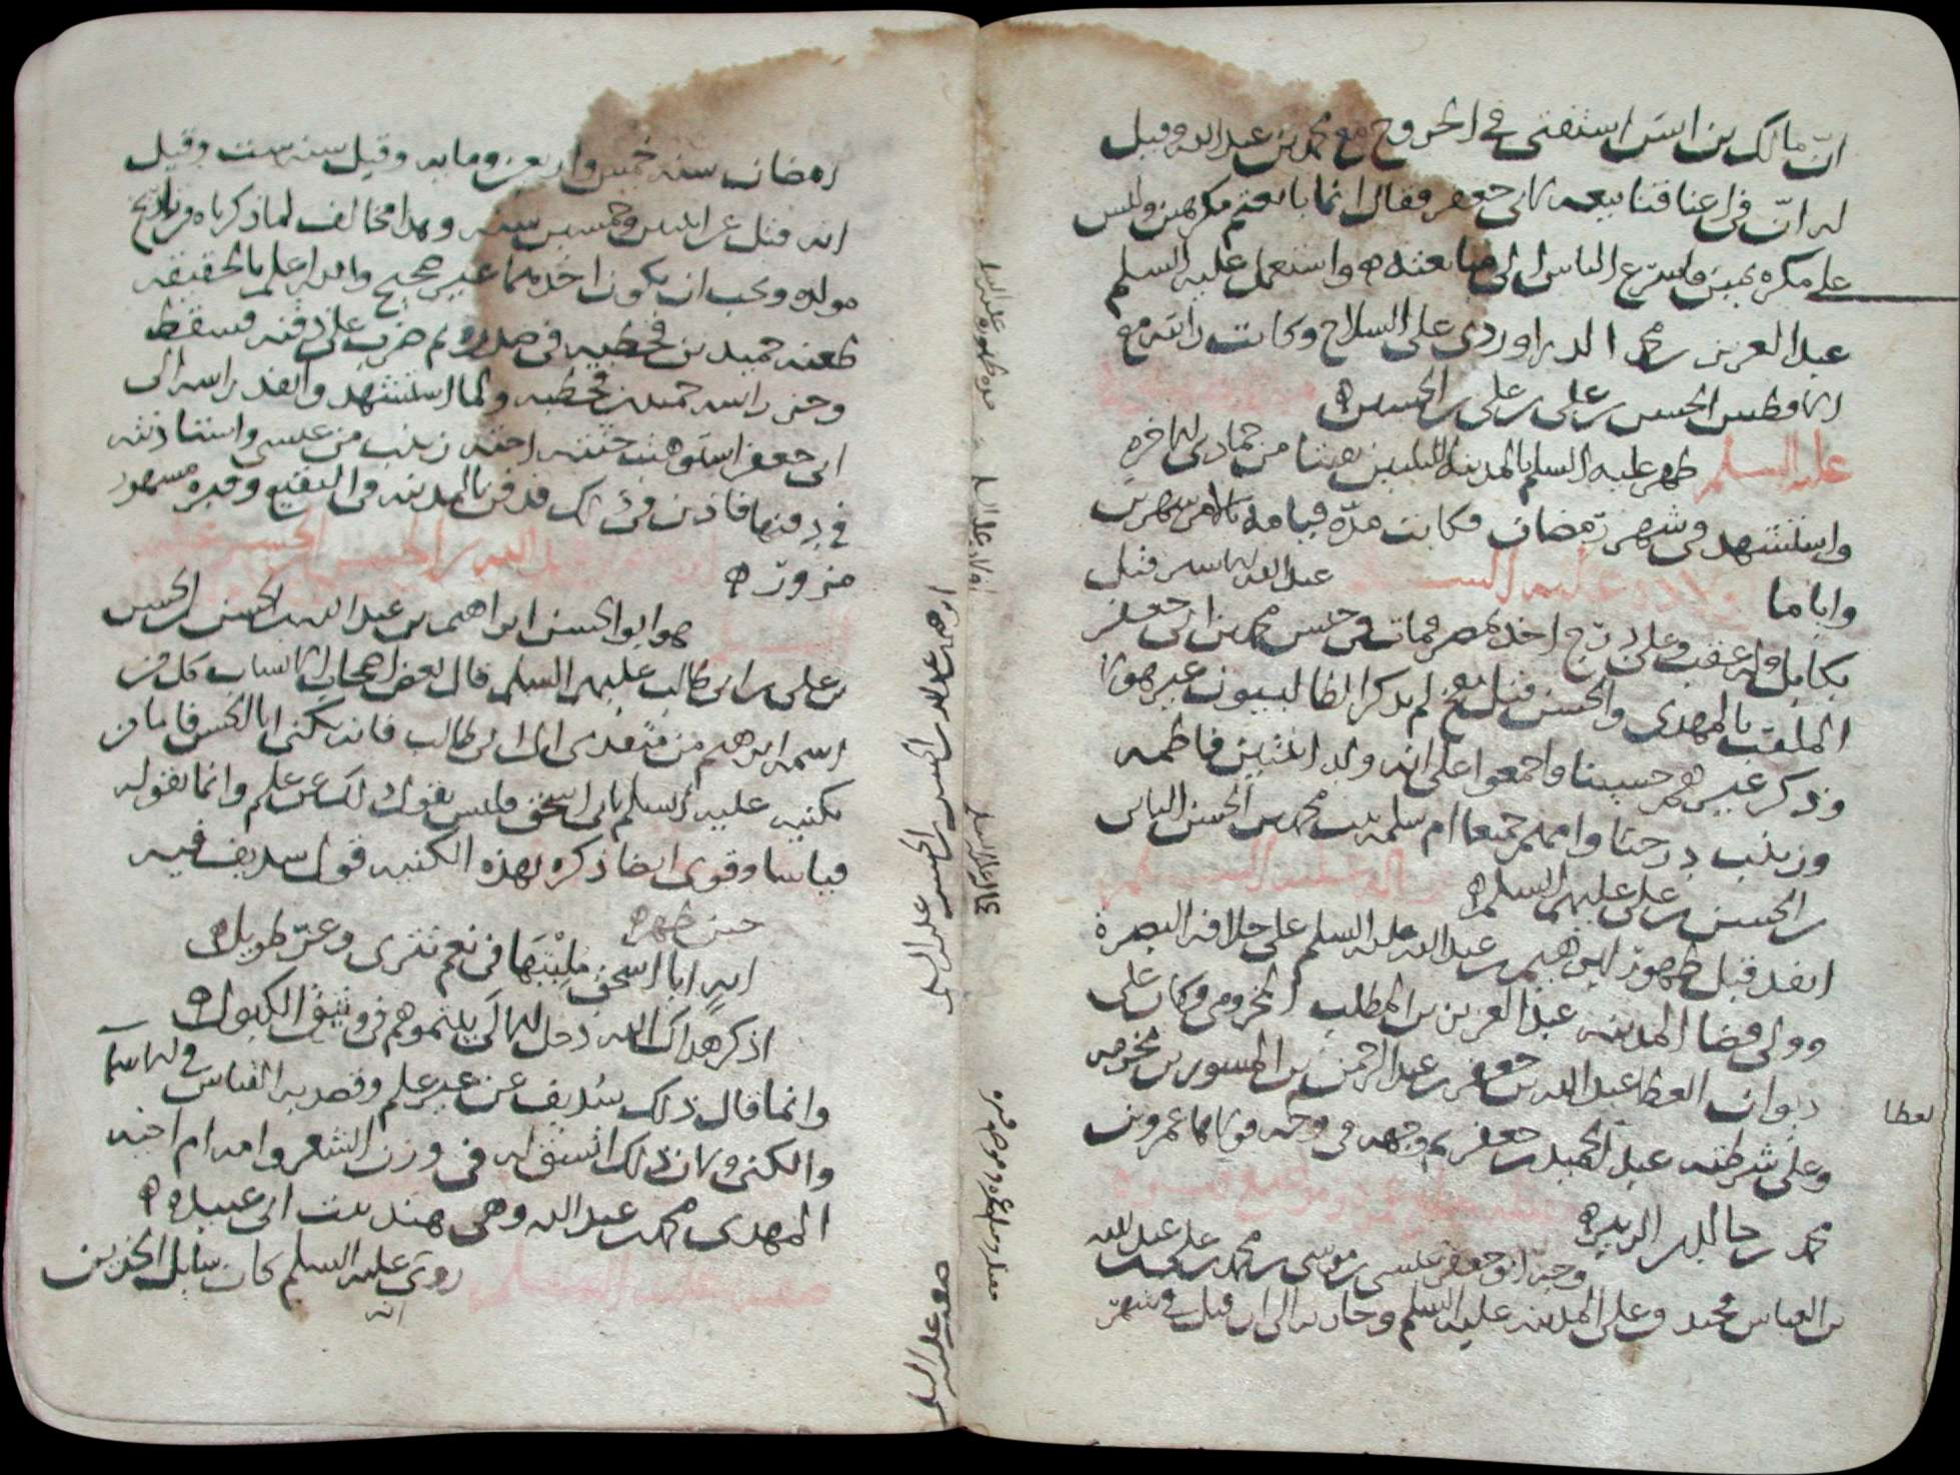 ان مالك بن انس استفتى في الخروج مع محمد بن عبدالله وقيل
له ان في اعناقنا بيعه لابي جعفر فقال انما بايعتم مكرهين وليس
على مكره يمين فاسرع الناس الى مبايعته ه واستعمل عليه السلم
عبد العزيز بن محمد الدراوردي على السلاح وكانت رايته مع
الافطس الحسن بن علي بن علي بن الحسين ه
عليه السلم ظهر عليه السلم بالمدينه لليلتين بقيتا من جمادى الاخره
واستشهد في شهر رمضان فكانت مدة قيامه بالامر شهرين
واياما
اولاده عليه السلم عبد الله الاشتر قتل
بكابل وله عقب وعلي درج اخذ بمصر فمات في حبس محمد بن ابي جعفر
الملقب بالمهدي والحسن قتل بفخ لم يذكر الطالبيون غير هولا
وذكر غيرهم حسينا واجمعوا على انه ولد ابنتين فاطمه
وزينب درجتا وامهم جميعا ام سلمه بنت محمد بن الحسن
بن الحسن بن علي عليهم السلم ه
عماله عليه السلم
انفذ قبل ظهوره ابرهيم بن عبدالله عليه السلم على خلافه البصرة
وولى قضا المدينه عبد العزيز بن المطلب المخزومي وكان على
ديوان العطا عبدالله بن جعفر بن عبد الرحمن بن المسور بن مخرمه
لعطا
وعلى شرطته عبد الحميد بن جعفر ثم وجهه في وجه فولاها عمرو بن
محمد بن خالد بن الزبير ه
مقتله ومبلغ عمره وموضع قبره
وجه ابو جعفر عيسى بن موسى بن محمد بن علي بن عبد الله
بن العباس المدينه عليه السلم وحاربه الى ان قتل في شهر
مده ظهوره عليه السلم
اولاده عليه السلم
عماله عليه السلم
مقتله ومبلغ عمره وموضع قبره
رمضان سنه خمس واربعين ومايه وقيل سنه ست وقيل
انه قتل عن اثنتين وخمسين سنه وهذا مخالف لما ذكرناه من تاريخ
مولده ويجب ان يكون احدهما غير صحيح والله اعلم بالحقيقه
طعنه حميد بن قحطبه في صدره ثم ضرب على ذقنه فسقط
وحز راسه حميد بن قحطبه ولما استشهد وانفذ راسه الى
ابي جعفر استوهبت جثته اخته زينب من عيسى واستاذنته
في دفنها فاذن في ذلك فدفن بالمدينه في البقيع وقبره مشهور
مزور ه
ابرهيم بن عبد الله بن الحسن بن الحسن عليه السلم
هو ابو الحسن ابراهيم بن عبدالله بن الحسن بن الحسن
بن علي بن ابي طالب عليهم السلم قال بعض اصحاب الانساب كل من
اسمه ابرهيم من متقدمي ال ابي طالب فانه يكنى ابا الحسن فاما من
يكنيه عليه السلم بابي اسحق فليس يقول ذلك عن علم وانما يقوله
قياسا وقوى ايضا ذكره بهذه الكنيه قول سديف فيه
حين ظهر ه
ايه ابا اسحق مليتها في نعم تترى وعز طويل ه
اذكر هداك الله دحل الاولى يلتموهم في وثيق الكبول ه
وانما قال ذلك سديف عن غير علم وقصد به القياس في الاسما
والكنى ولان ذلك اتسق له في وزن الشعر وامه ام اخيه
المهدي محمد بن عبدالله وهي هند بنت ابي عبيده ه
صفته عليه السلم روي انه عليه السلم كان سايل الخدين
ابرهيم بن عبد الله بن الحسن بن الحسن عليه السلم
صفته عليه السلم